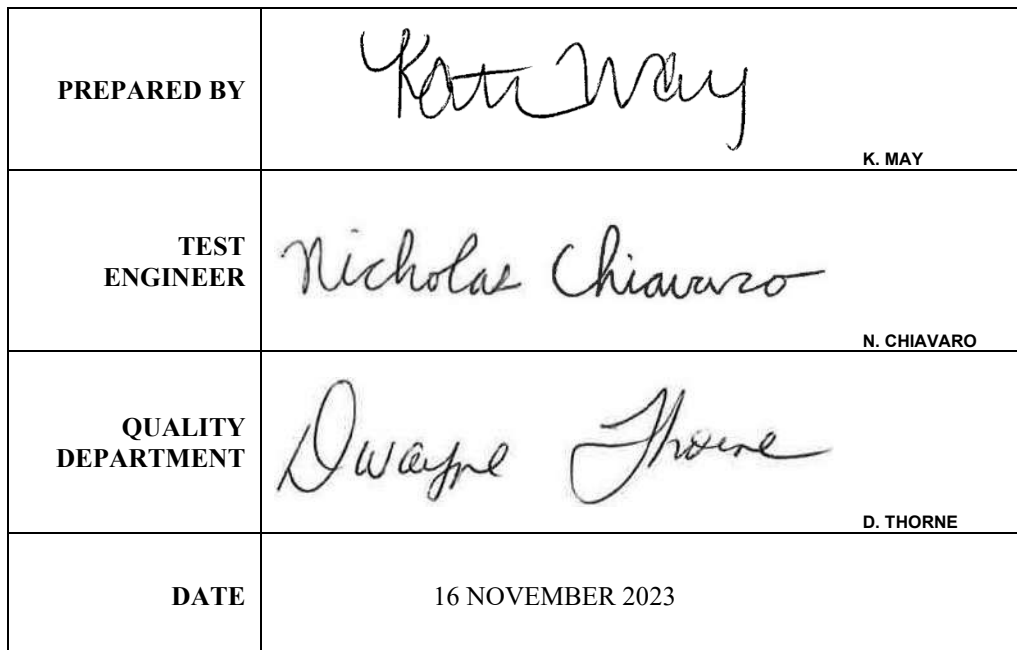 PREPARED BY
Kati May
K. MAY
TEST
ENGINEER
Nicholas Chiavaro
N. CHIAVARO
QUALITY
DEPARTMENT
Dwayne Thorne
D. THORNE
DATE
16 NOVEMBER 2023